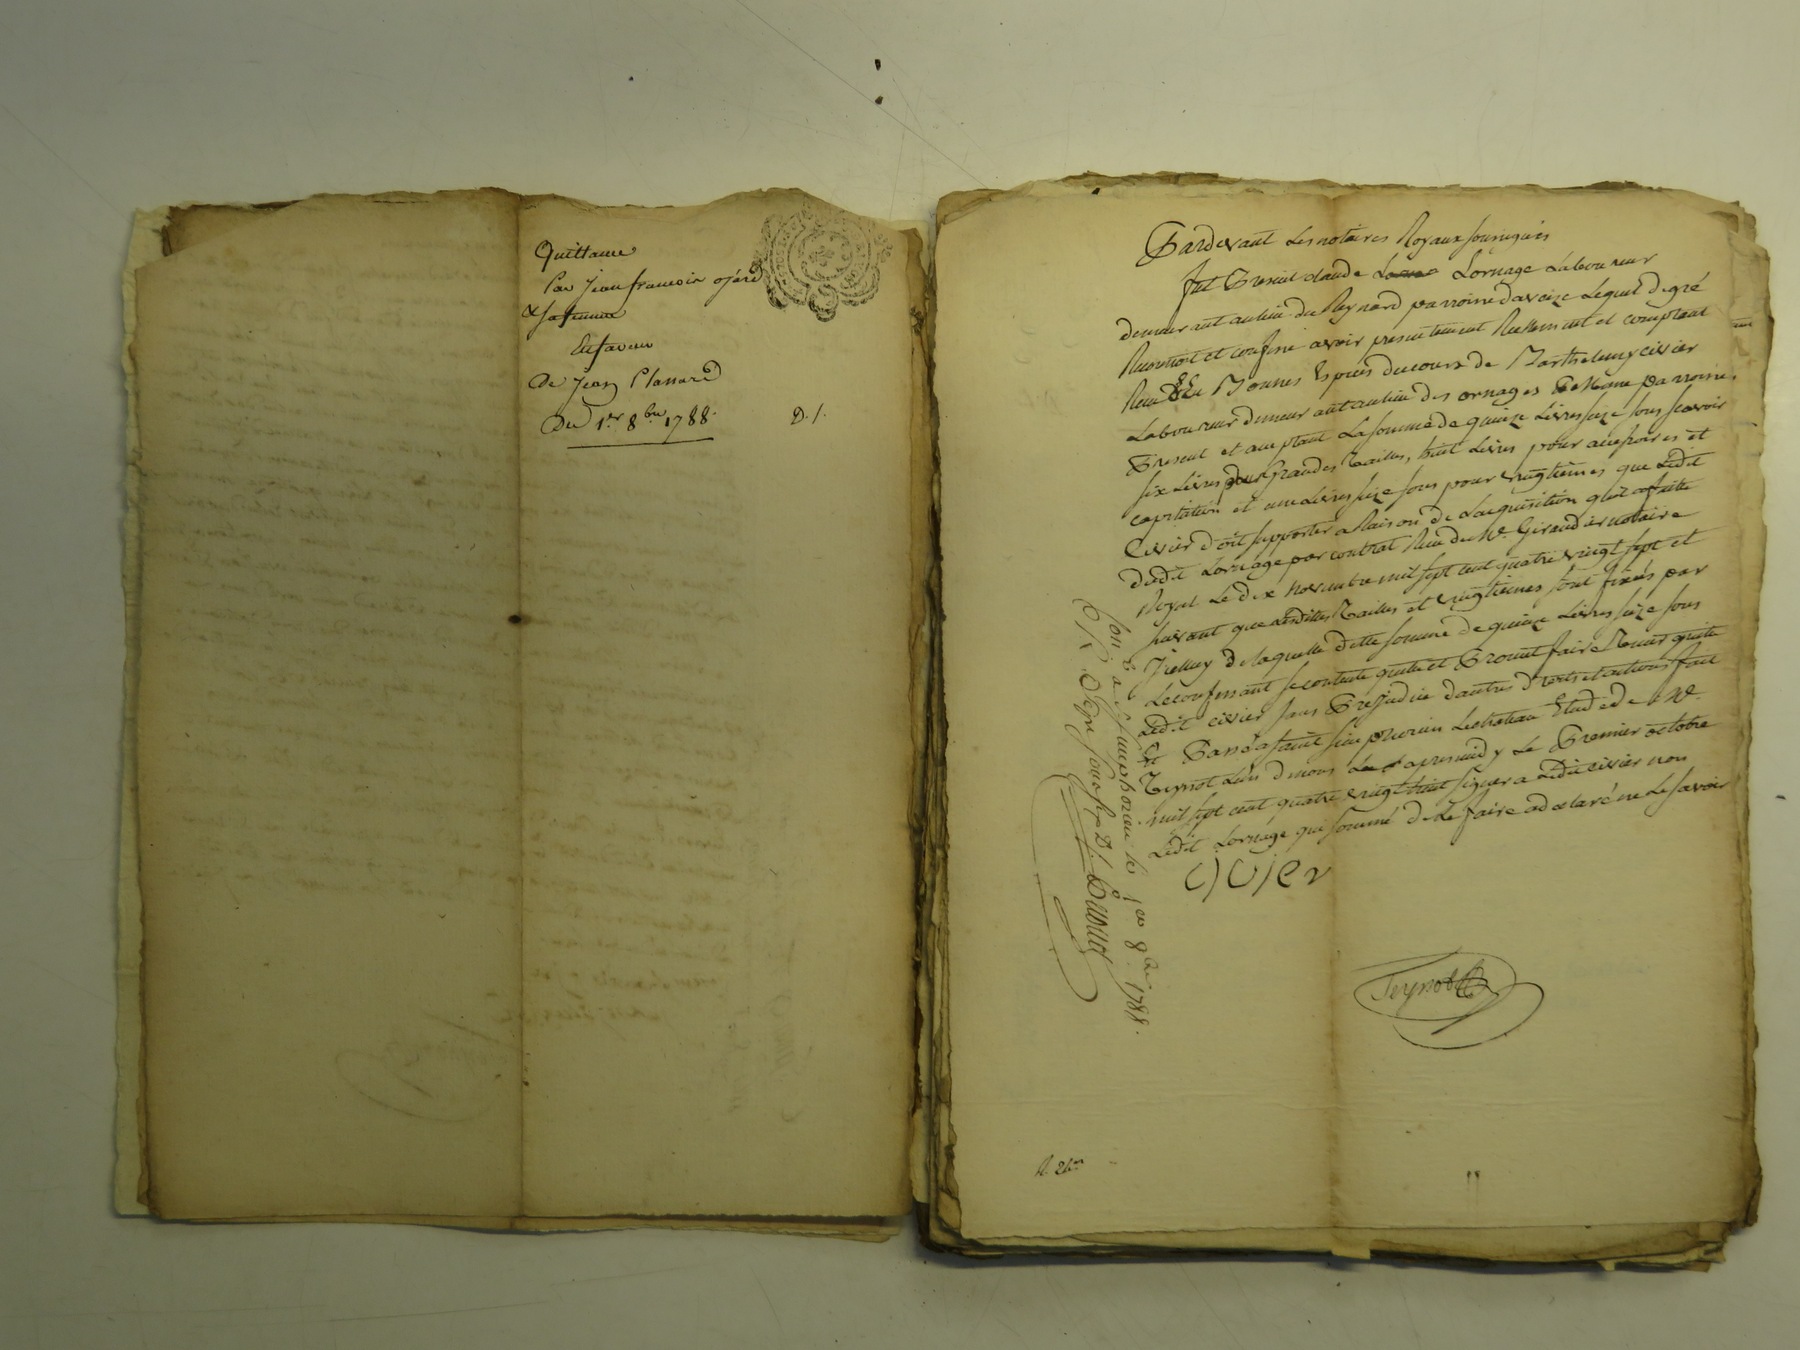 Quittance
Par Jean francois ojard
& sa femme
En faveur
De Jean Planard
Du 1er 8bre 1788.
D. /.
Pardevant Les notaires Royaux soussignés
fut Present claude Lornage Laboureur
demeurant au lieu du Reynard parroisse daveize Lequel de gré
Reconnoit et confesse avoir presentement Reellement et comptant
Receu En Bonnes Especes du cours de Barthelemy civier
Laboureur demeurant au lieu des ornages meme parroisse,
Present et acceptant La somme de quinze Livres seize sous scavoir
six Livres pour Grandes Tailles, huit Livres pour accessoires et
capitation et une Livre seize sous pour vingtiemes que Ledit
Civier doit supporter a Raison de Lacquisition quil a faitte
dudit Lornage par contrat Receu du Me. Giraud notaire
Royal Le dix novembre mil sept cent quatre vingt sept et
suivant que Lesdittes Tailles et vingtiemes sont fixés par
Jceluy de laquelle ditte somme de quinze Livres seize sous
Le confessant se contente quitte et Promet faire Tenir quitte
Ledit civier sans Prejudice dautres droits et actions fait
Et Passé a saint simphorien Lechateau Etude de Me.
Teynot Lun de nous apres midy Le Premier octobre
mil sept cent quatre vingt huit signera Ledit civier non
Ledit Lornage qui sommé de Le faire a declaré ne Le savoir
civier
Teynot
Con. a St. simphorien le 1er 8bre 1788.